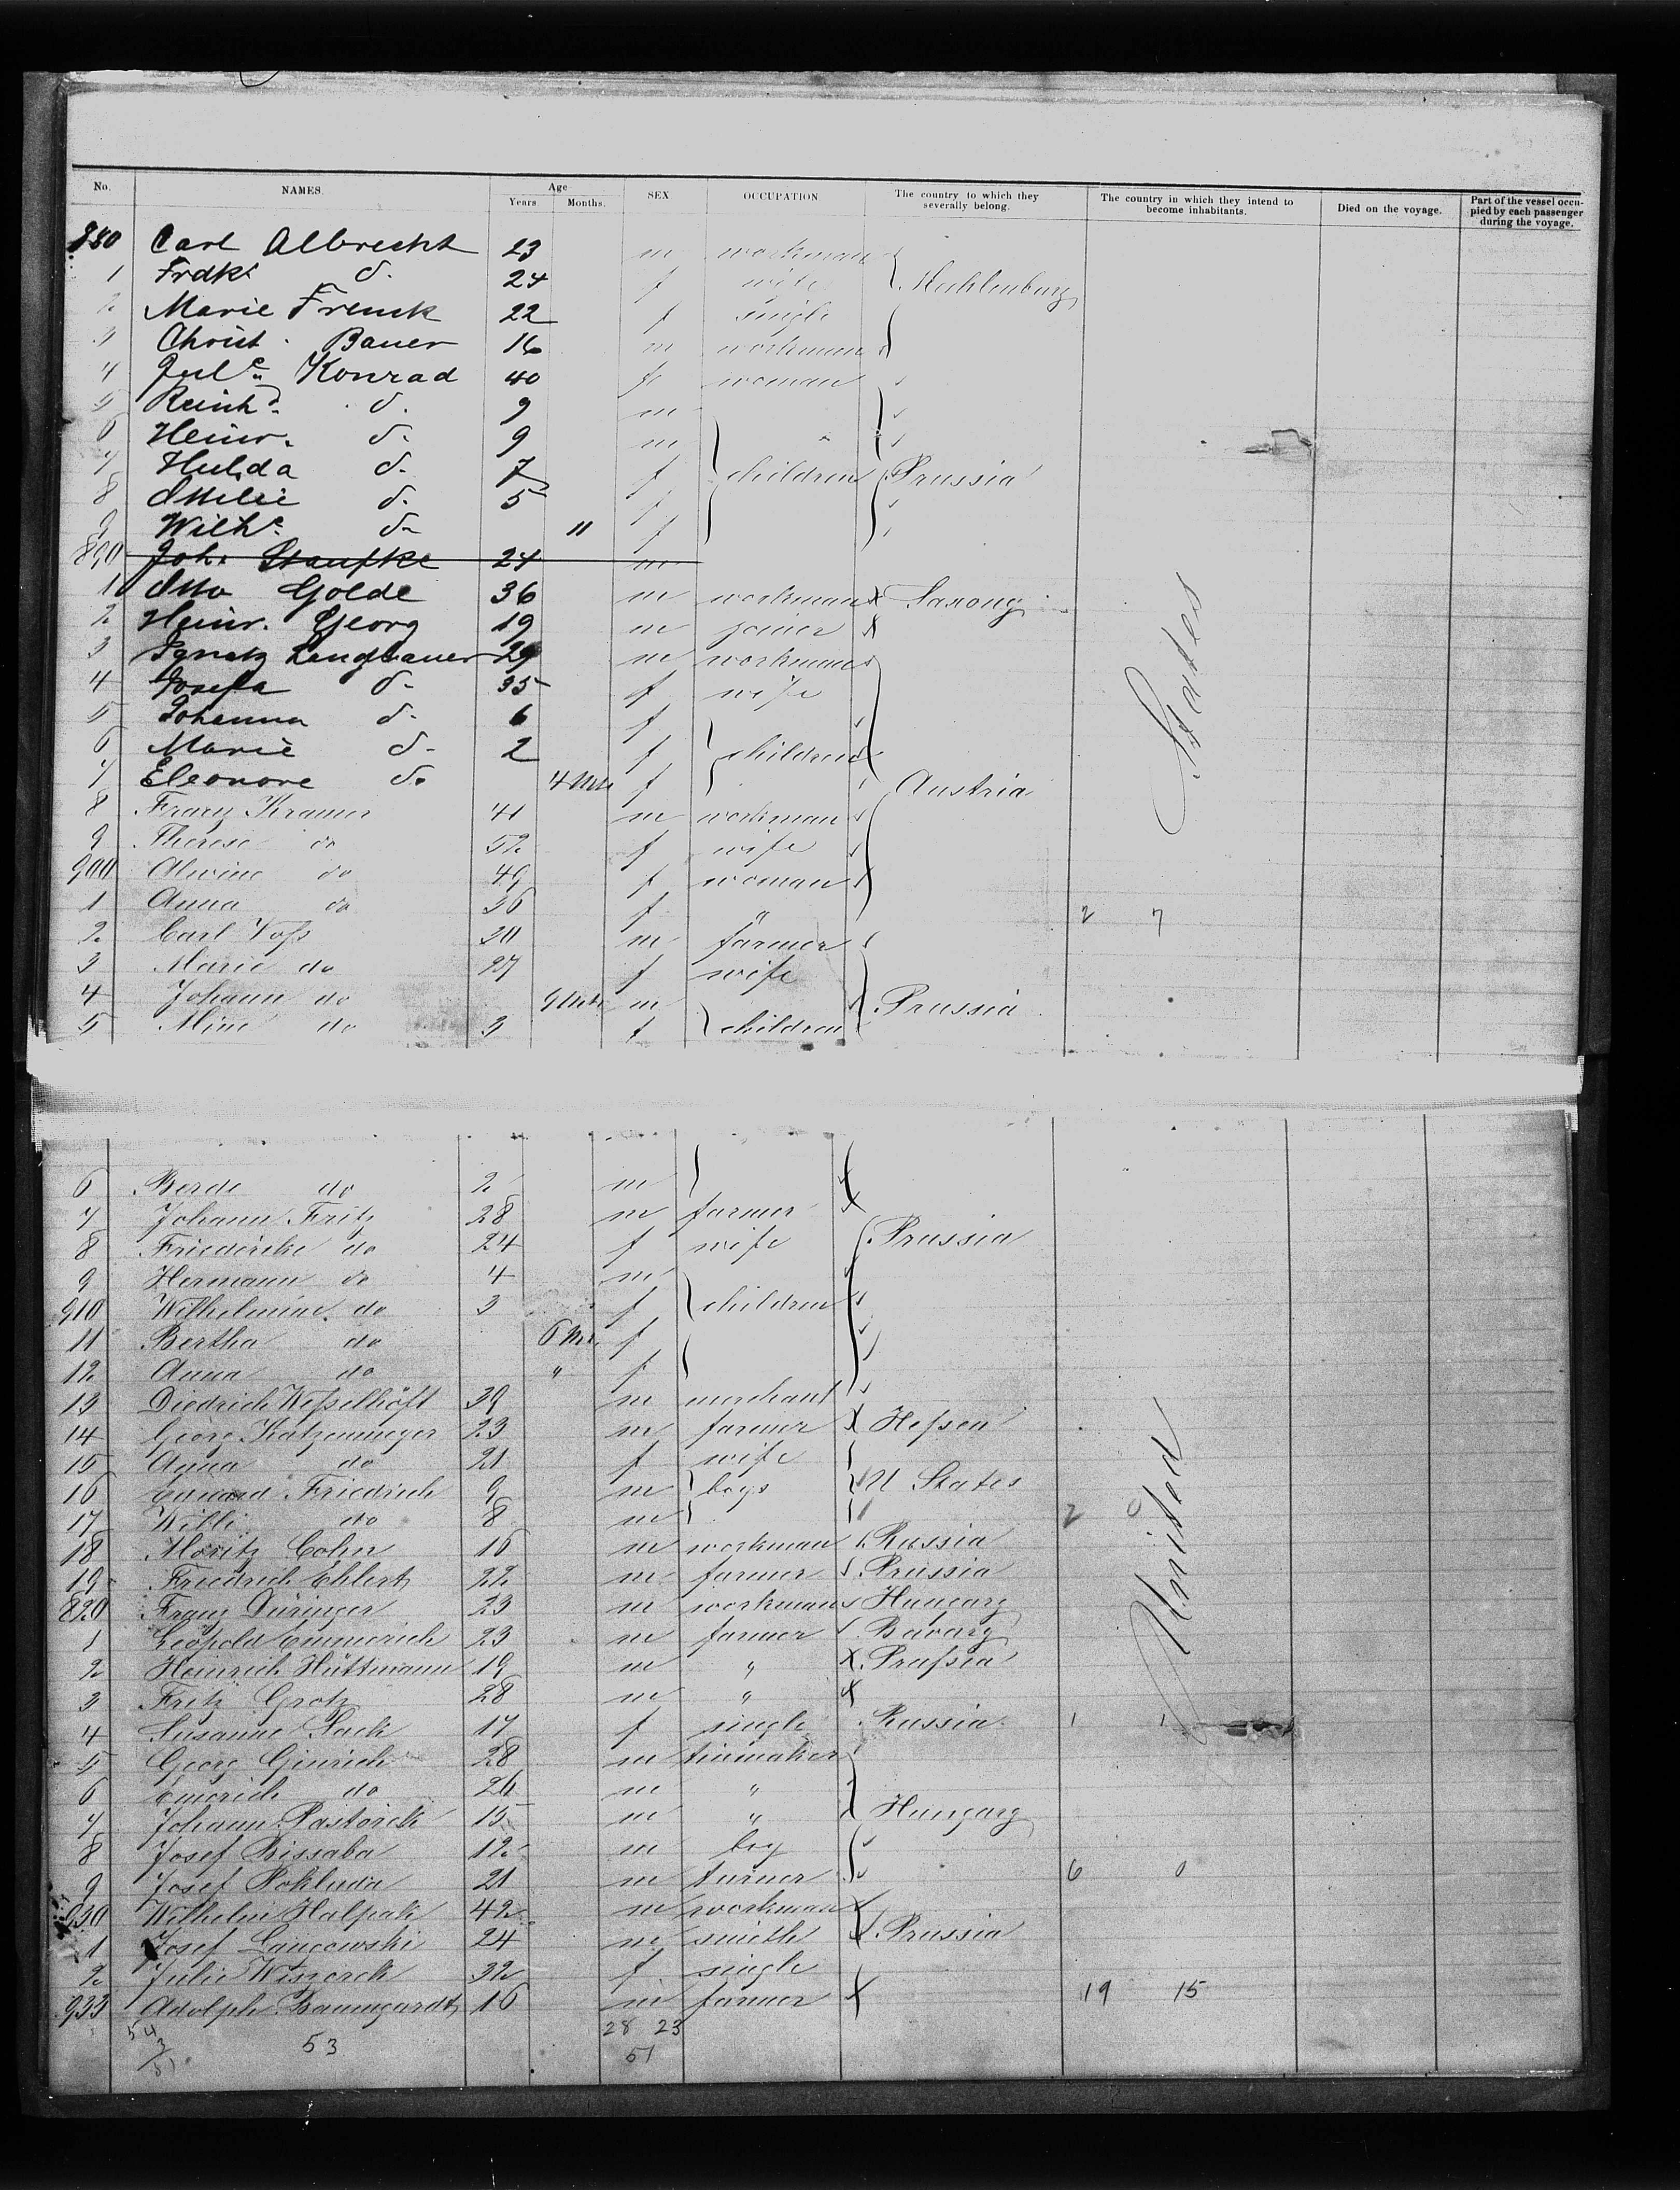 No. NAMES. Age Years Months. SEX OCCUPATION The country to which they severally belong. The country in which they intend to become inhabitants. Died on the voyage. Part of the vessel occupied by each passenger during the voyage.
880 Carl Albrecht 23 m workman
1 Frdke d. 24 f wife Mecklenburg
2 Marie Frenck 22 f single
3 Christ. Bauer 16 m workman
4 Jul.e Konrad 40 f woman
5 Reinhd. d. 9 m
6 Heinr. d. 9 m
7 Hulda d. 7 f children Prussia
8 Ottilie d. 5 f
9 Wilhe. d. 11 f
890 Joh. Staufke 24 m
1 Otto Golde 36 m workman Saxony
2 Heinr. Georg 19 m joiner
3 Ignatz Langbauer 29 m workman
4 Josefa d. 35 f wife
5 Johanna d. 6 f
6 Marie d. 2 f children
7 Eleonore do 4 Mts f Austria
8 Franz Kramer 41 m workman
9 Therese do 52 f wife
900 Alwine do 49 f woman
1 Anna do 36 f " 2 7
2 Carl Voss 30 m farmer
3 Marie do 27 f wife
4 Johann do 9 Mts m Prussia
5 Mine do 3 f children
States
6 Berde do 2 m
7 Johann Fritz 28 m farmer
8 Friedericke do 24 f wife Prussia
9 Hermann do 4 m
910 Wilhelmine do 3 f children
11 Bertha do 6 Mts f
12 Anna do " f
13 Diedrich Wesselhöft 39 m merchant
14 Georg Katzenmeyer 23 m farmer Hessen
15 Anna do 21 f wife
16 Eduard Friedrich 9 m boys U States
17 Willi do 8 m 2 0
18 Moritz Cohn 16 m workman Russia
19 Friedrich Ehlert 22 m farmer Prussia
820 Franz Düringer 23 m workman Hungary
1 Leopold Emmerich 23 m farmer Bavary
2 Heinrich Hüttmann 19 m " Prussia
3 Fritz Grotz 28 m "
4 Susanne Sack 17 f single Russia 1 1
5 Georg Ginrich 28 m tinmaker
6 Emerich do 26 m "
7 Johann Pastorek 15 m " Hungary
8 Josef Bissaba 12 m boy
9 Josef Pohluda 21 m turner 6 0
930 Wilhelm Halpak 42 m workman
1 Josef Lancowski 24 m smith Prussia
2 Julie Wiszorek 32 f single
933 Adolph Baumgardt 16 m farmer 19 15
United
54 28 23
3 53
51 51